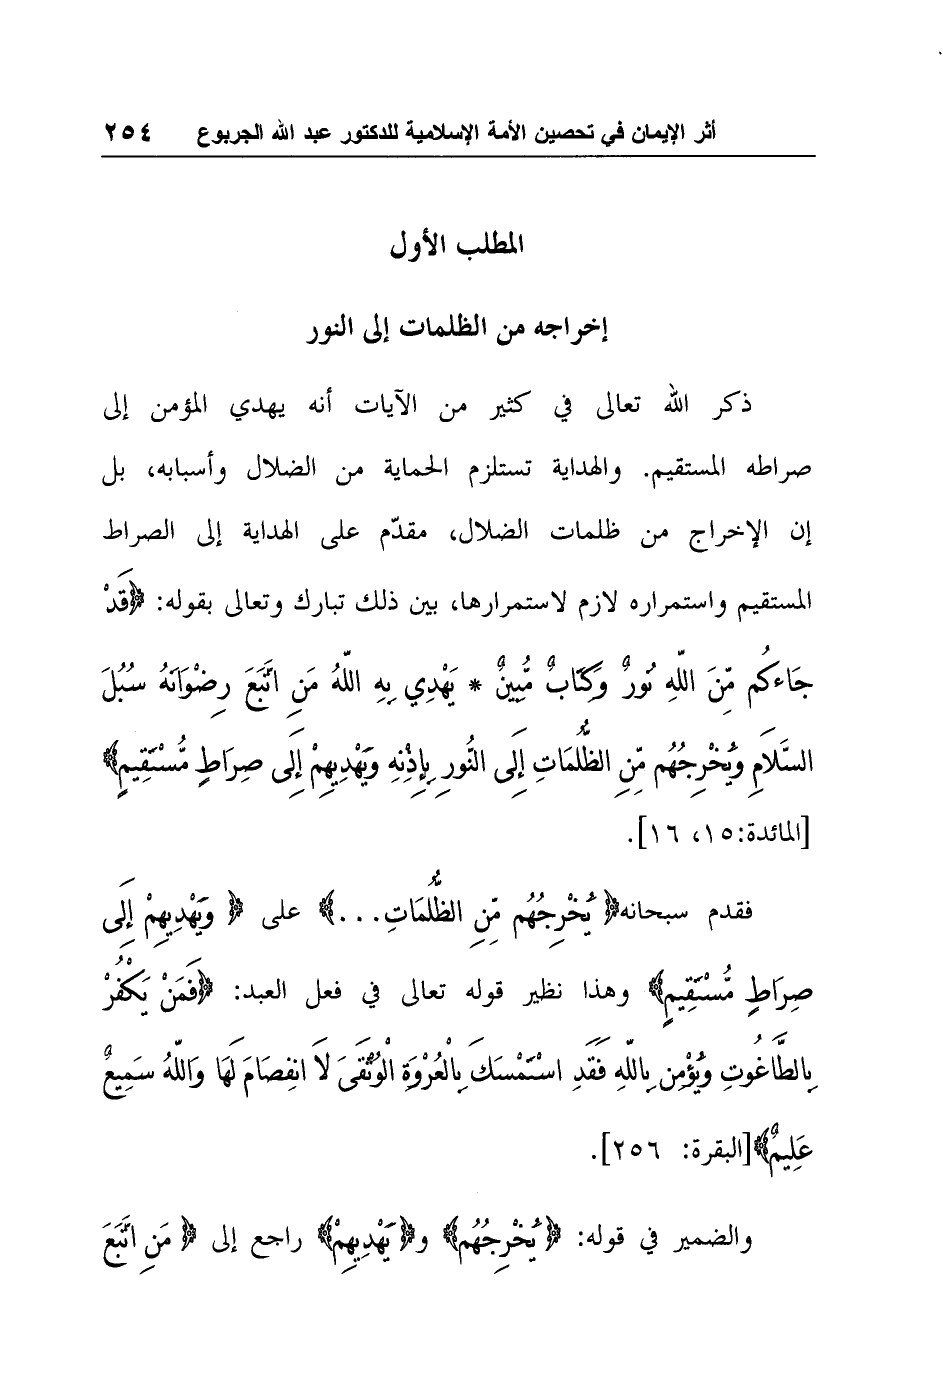 أثر الإيمان في تحصين الأمة الإسلامية للدكتور عبد الله الجربوع ٢٥٤
المطلب الأول
إخراجه من الظلمات إلى النور
ذكر الله تعالى في كثير من الآيات أنه يهدي المؤمن إلى
صراطه المستقيم. والهداية تستلزم الحماية من الضلال وأسبابه، بل
إن الإخراج من ظلمات الضلال، مقدّم على الهداية إلى الصراط
المستقيم واستمراره لازم لاستمرارها، بين ذلك تبارك وتعالى بقوله: ﴿قَدْ
جَاءكُم مِّنَ اللّهِ نُورٌ وَكِتَابٌ مُّبِينٌ * يَهْدِي بِهِ اللّهُ مَنِ اتَّبَعَ رِضْوَانَهُ سُبُلَ
السَّلاَمِ وَيُخْرِجُهُم مِّنِ الظُّلُمَاتِ إِلَى النُّورِ بِإِذْنِهِ وَيَهْدِيهِمْ إِلَى صِرَاطٍ مُّسْتَقِيمٍ﴾
[المائدة:١٥، ١٦].
فقدم سبحانه﴿ يُخْرِجُهُم مِّنِ الظُّلُمَاتِ...﴾ على ﴿ وَيَهْدِيهِمْ إِلَى
صِرَاطٍ مُّسْتَقِيمٍ﴾ وهذا نظير قوله تعالى في فعل العبد: ﴿فَمَنْ يَكْفُرْ
بِالطَّاغُوتِ وَيُؤْمِن بِاللّهِ فَقَدِ اسْتَمْسَكَ بِالْعُرْوَةِ الْوُثْقَىَ لاَ انفِصَامَ لَهَا وَاللّهُ سَمِيعٌ
عَلِيمٌ﴾[البقرة: ٢٥٦].
والضمير في قوله: ﴿ يُخْرِجُهُم﴾ و﴿يَهْدِيهِمْ﴾ راجع إلى ﴿ مَنِ اتَّبَعَ